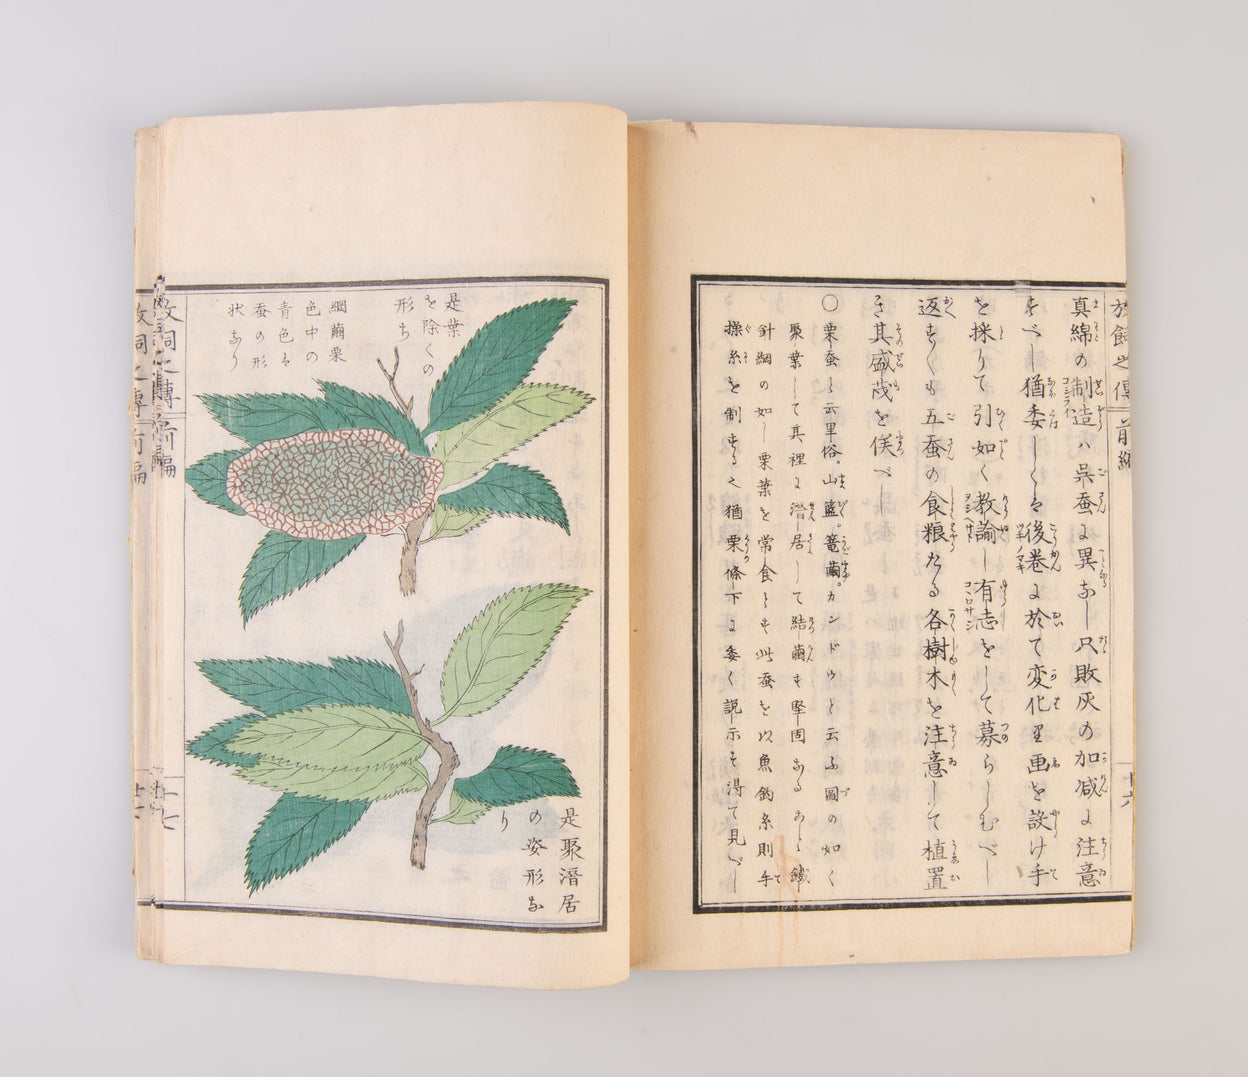 放飼之傳 前編
十六
真綿の制造ハ呉蚕に異なし只敗灰の加减に注意
すべし猶委しくは後巻に於て変化の画を設け手
を採りて引如く教諭し有志をして募らしむべし
返すくも五蚕の食粮たる各樹木を注意して植置
き其盛茂を俟べし
〇栗蚕と云里俗山籃篭繭カンドウと云ふ圖の如く
聚葉して其裡に潜居して結繭す堅固なるあら鐵
針綱の如し栗葉を常食とす此蚕を以魚釣糸則手
操糸を制する之猶栗條下に委く説示を得て見べし
是葉
を除くの
形ち
綱繭栗
色中の
青色は
蚕の形
状なり
是聚潜居
の姿形な
り
十七